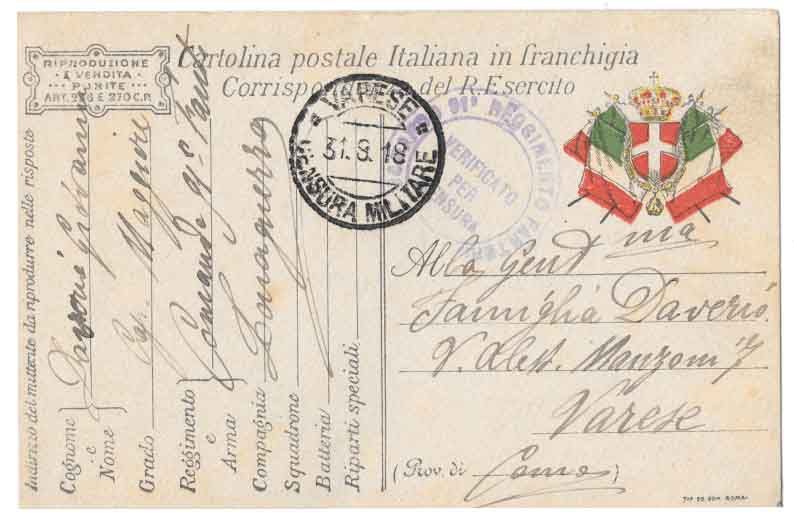 RIPRODUZIONE
E VENDITA
PUNITE
ART. 276 E 270 C.P.
Cartolina postale Italiana in franchigia
Corrispondenza del R. Esercito
VARESE
31.8.18
CENSURA MILITARE
91º REGGIMENTO FANTERIA
VERIFICATO
PER
CENSURA
Alla Gent ma
Famiglia Daverio
V. Aless. Manzoni 7
Varese
(Prov. di Como)
Indirizzo del mittente da riprodurre nelle risposte
Cognome
e
Nome
Giovanni
Grado Cap. Maggiore
Reggimento
e
Arma
Comando 91º Fant
Compagnia Zona guerra
Squadrone
Batteria
Riparti speciali